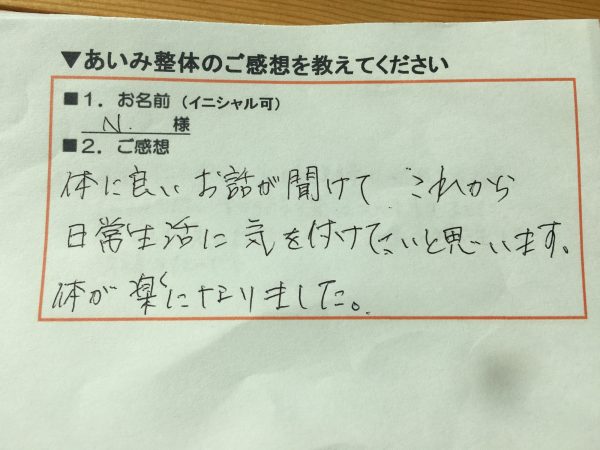 ▼あいみ整体のご感想を教えてください
■1．お名前（イニシャル可）
N. 様
■2．ご感想
体に良いお話が聞けて これから
日常生活に気を付けたいと思います。
体が楽になりました。